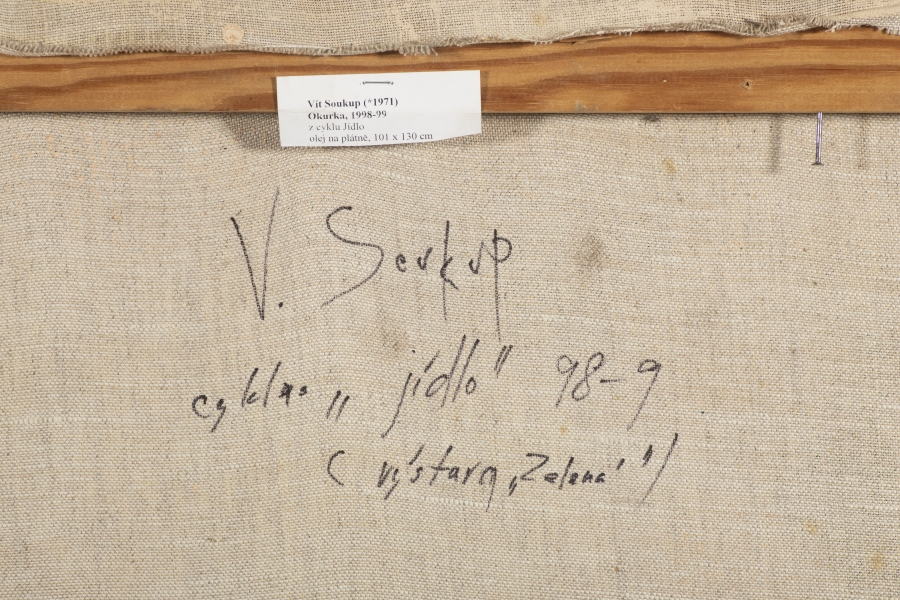 Vít Soukup (*1971)
Okurka, 1998-99
z cyklu Jídlo
olej na plátně, 101 x 130 cm
V. Soukup
cyklus „ jídlo" 98-9
( výstava „Zelená" )